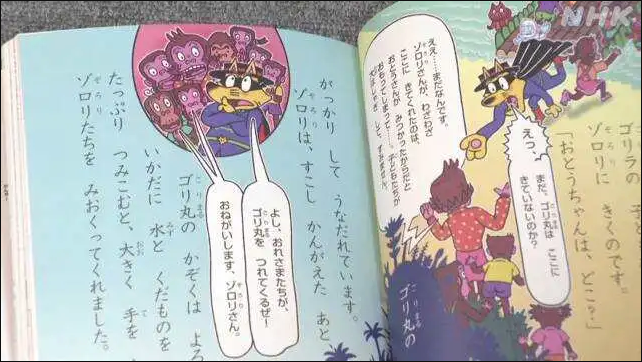 NHK
ゴリラの
ゾロリに きくのです。
「おとうちゃんは、どこ?」
えっ、
まだ、ゴリ丸は ここに
きていないのか?
ええ……まだなんです。
ゾロリさんが、わざわざ
ここに きてくれたのは、
おとうさんが
みつかったからだと
おもってしまって……子どもたちが
ゴリ丸の
がっかり して うなだれています。
ゾロリは、すこし かんがえた あと
よし、おれさまたちが、
ゴリ丸を つれてくるぜ!
おねがいします、ゾロリさん。
ゴリ丸の かぞくは よろ
いかだに 水と くだものを
たっぷり つみこむと、大きく 手を
ゾロリたちを みおくってくれました。